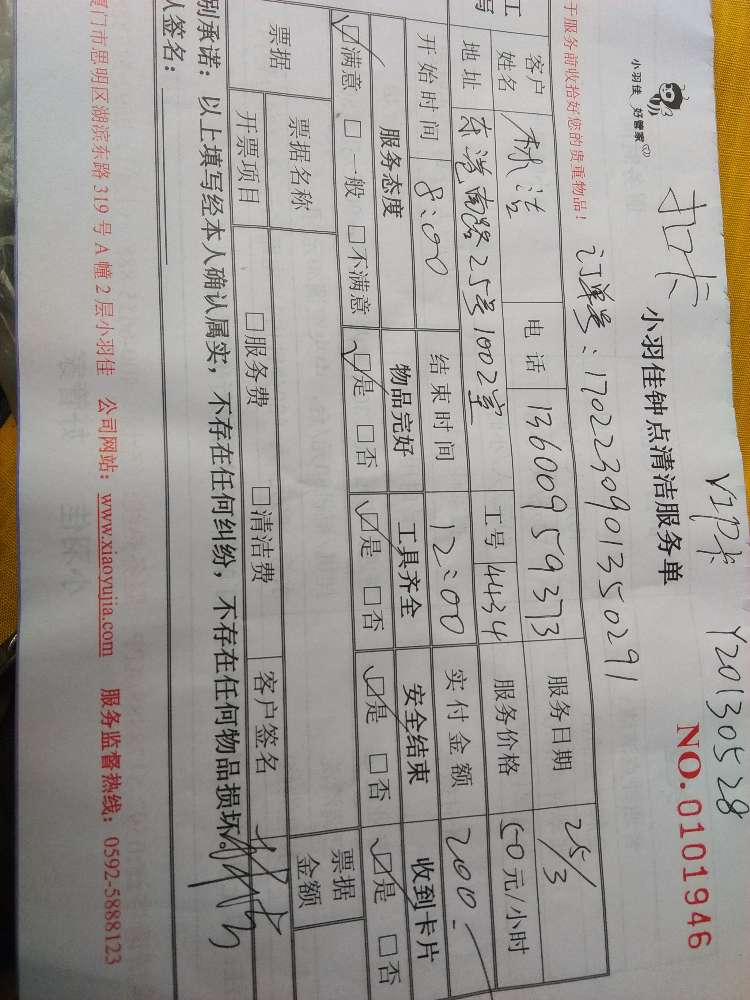 VIP卡 Y20130528
扣卡
小羽佳 好管家
小羽佳钟点清洁服务单
NO.0101946
订单号：17022309013502 91
于服务前收拾好您的贵重物品！
工
写
客户姓名 林洁 电话 13600959373 服务日期 25/3
地址 东港南路25号1002室 工号 4434 服务价格 50元/小时
开始时间 8:00 结束时间 12:00 实付金额 200.-
服务态度 物品完好 工具齐全 安全结束 收到卡片
☑满意 □一般 □不满意 ☑是 □否 ☑是 □否 ☑是 □否 ☑是 □否
票据 票据名称 票据金额
开票项目 □服务费 □清洁费 客户签名
别承诺：以上填写经本人确认属实，不存在任何纠纷，不存在任何物品损坏。
人签名：
厦门市思明区湖滨东路 319 号 A 幢 2 层小羽佳 公司网站：www.xiaoyujia.com 服务监督热线：0592-5888123